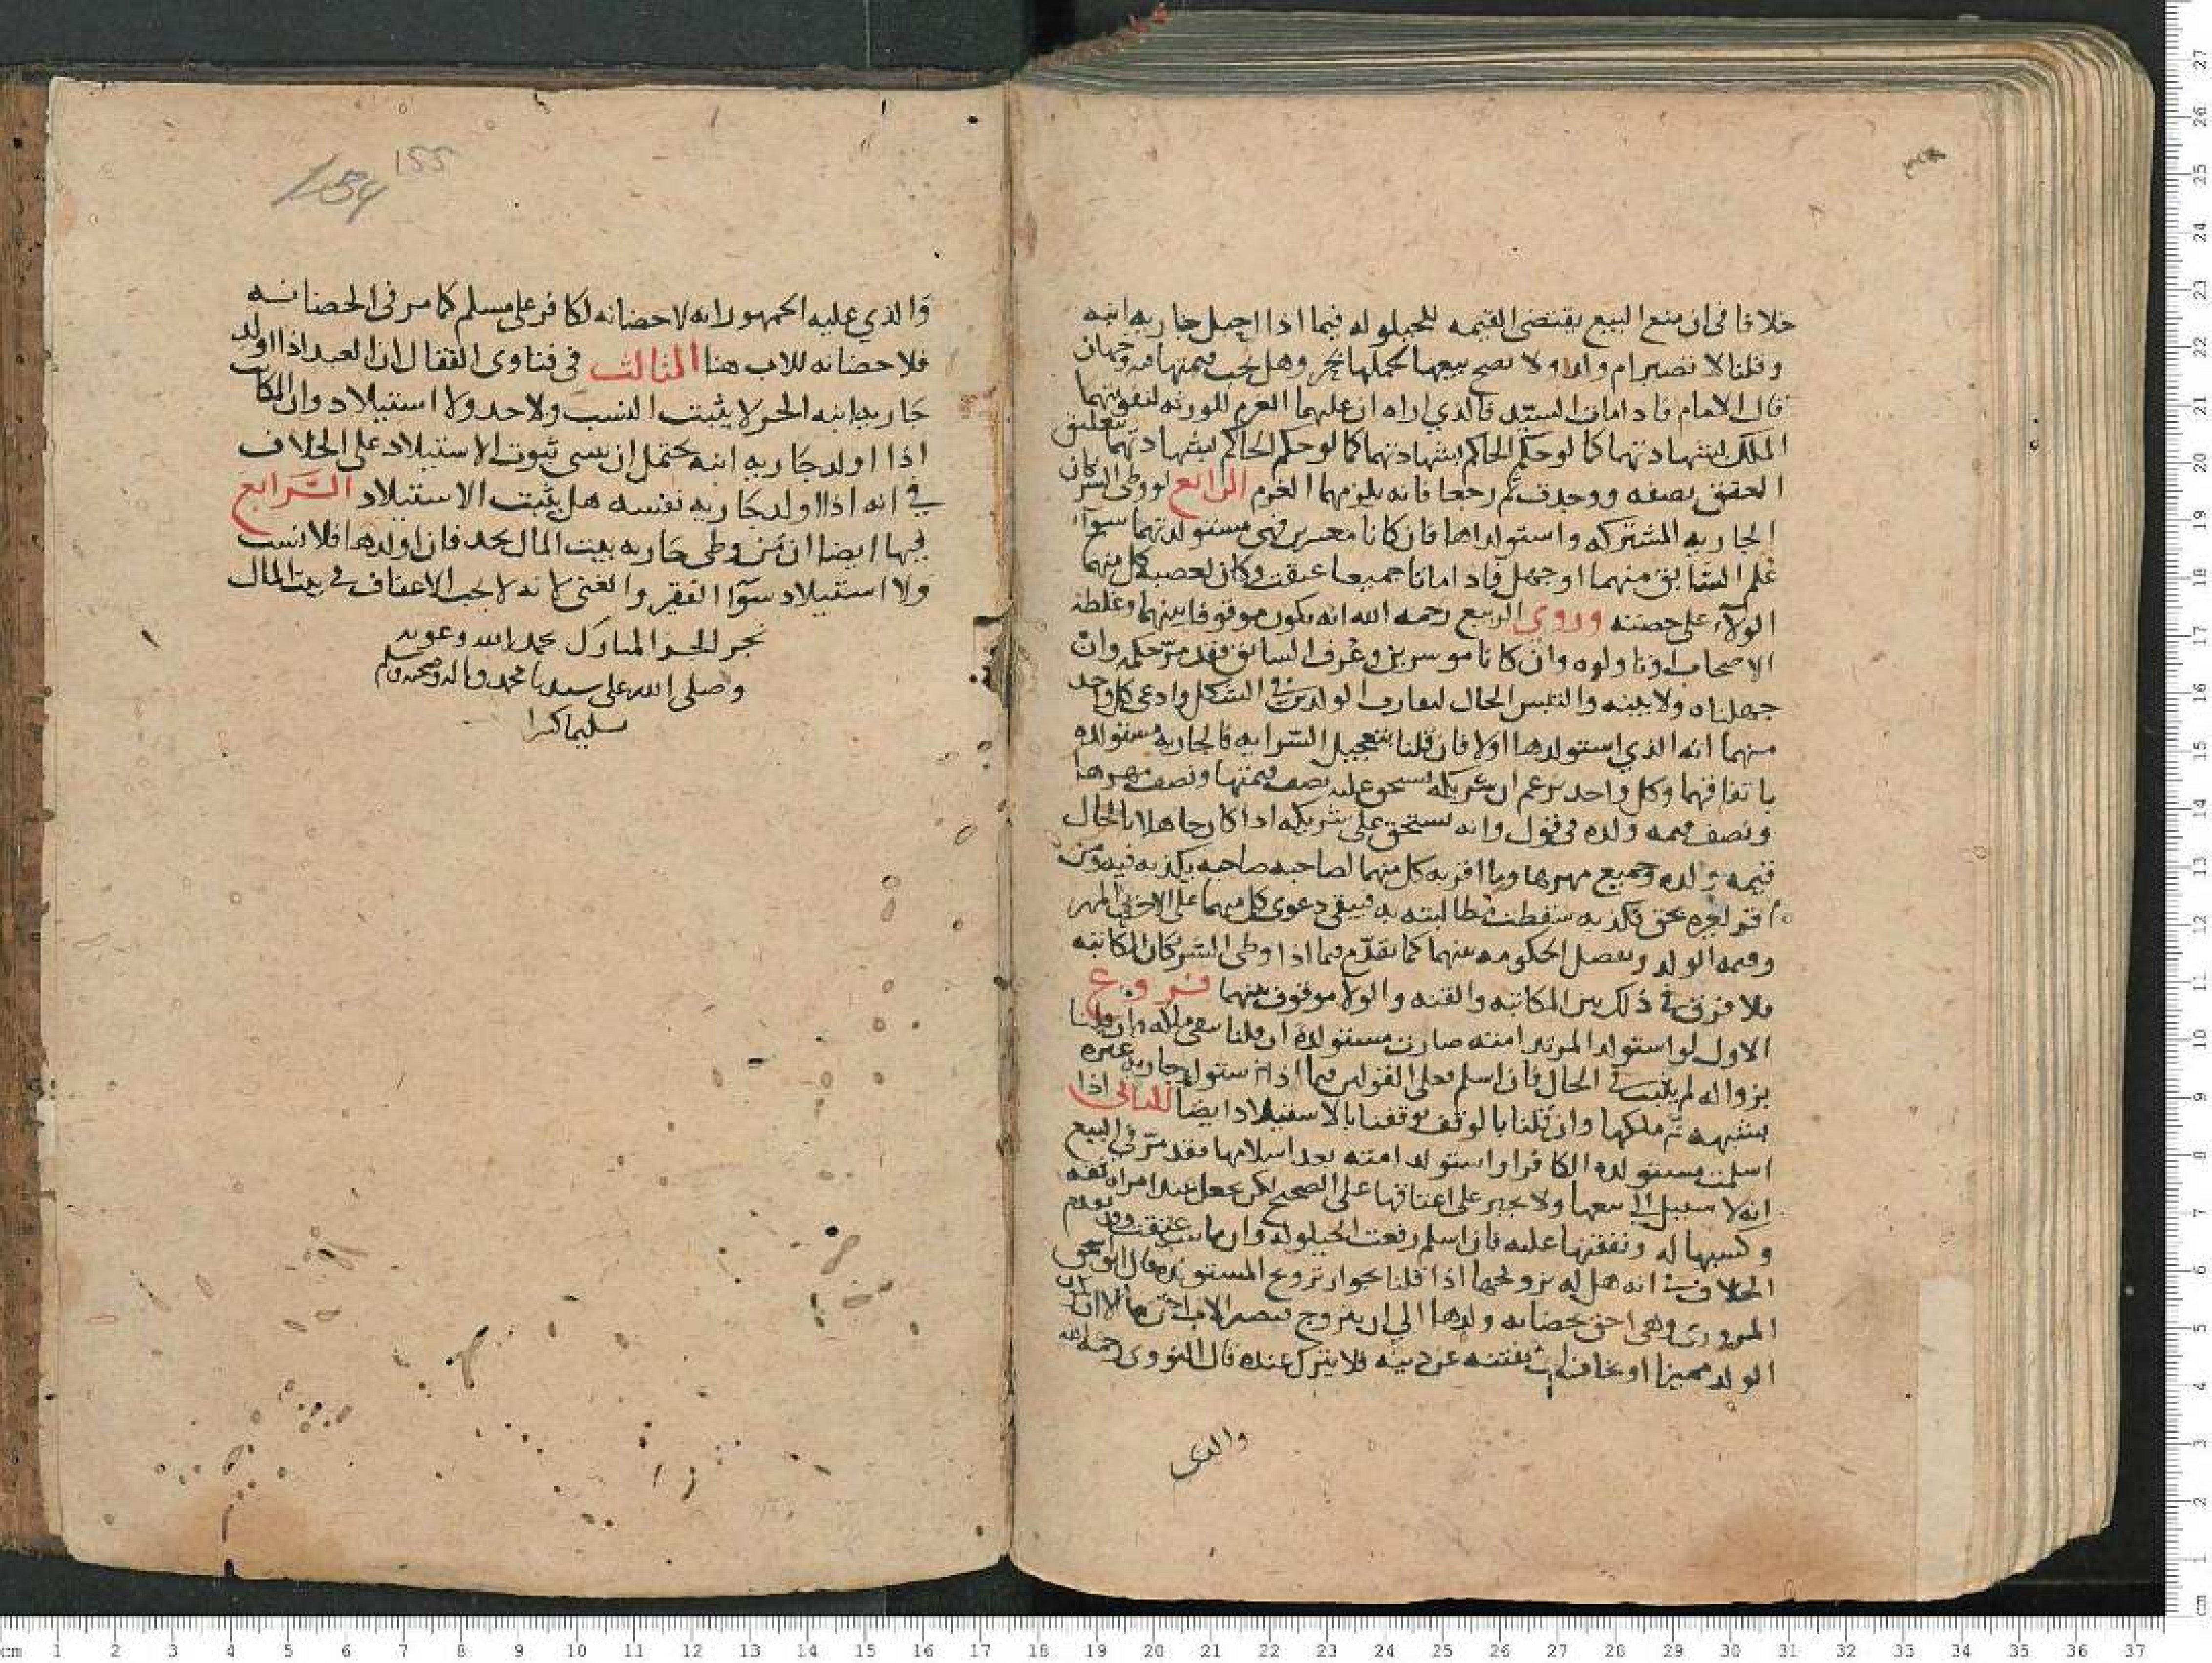 خلافا فى ان منع البيع يقتضى القيمه للحيلوله فيما اذا احبل جاريه ابنه
وقلنا لا تصير ام ولد او لا نصح بيعها لحملها بحر وهل تجب قيمتها فيه وجهان
قال الامام فاذا مات السيد فالذي اراه ان عليهما الغرم للورثه لتفويتهما
الملك بشهادتهما كما لو حكم الحاكم بشهادتهما كما لو حكم الحاكم بشهادتهما بتعليق
العتق بصفه ووجدت ثم رجعا فانه يلزمهما الغرم الرابع لو وطى الشريكان
الجاريه المشتركه واستولداها فان كانا معسرين فهى مستولدتهما سوآء
علم السابق منهما او جهل فاذا ماتا جميعا عتقت وكان لعصبه كل منهما
الولآء على حصته وروى الربيع رحمه الله انه يكون موقوفا بينهما وغلطه
الاصحاب او تاولوه وان كانا موسرين وعرف السابق فقد مرّ حكمه وان
جهلناه ولا بينه والتبس الحال لتقارب الولدين فى الشكل وادعى كل واحد
منهما انه الذي استولدها اولا فان قلنا بتعجيل السّرايه فالجاريه مستولده
باتفاقهما وكل واحد يزعم ان شريكه يستحق عليه نصف قيمتها ونصف مهرها
ونصف قيمه ولده فى قول وانه يستحق على شريكه اذا كان جاهلا بالحال
قيمه ولده وجميع مهرها وما اقر به كل منهما لصاحبه صاحبه يكذبه فيه ومن
اقر لغيره بحق فكذبه سقطت مطالبته به فيبقى دعوى كل منهما على الاخر فى المهر
وقيمه الولد وتفصل الحكومه بينهما كما تقدّم فيما اذا وطى الشريكان المكاتبه
فلا فرق فى ذلك بين المكاتبه والقنه والولا موقوف بينهما فروع
الاول لو استولد المرتد امته صارت مستولده ان قلنا ببقى ملكه وان قلنا
بزواله لم يثبت فى الحال فان اسلم فعلى القولين فيما اذا استولد جاريه غيره
بشبهه ثم ملكها وان قلنا بالوقف توقفنا بالاستيلاد ايضا الثانى اذا
اسلمت مستولده الكافر او استولد امته بعد اسلامها فقد مرّ فى البيع
انه لا سبيل الى بيعها ولا يجبر على اعتاقها على الصحيح لكن تجعل عند امراه ثقه
وكسبها له ونفقتها عليه فان اسلم رفعت الحيلوله وان مات عتقت وقد تقدم
الخلاف فى انه هل له تزويجها اذا قلنا بجواز تزويج المستولده قال ابو اسحق
المروزى وهى احق بحضانه ولدها الى ان يتزوج فيصير الاب احق بها الا ان يكون
الولد مميزا او يخاف ان يفتنه عن دينه فلا يترك عنده قال النووى رحمه الله
والذى
155
154
وَالذي عليه الجمهور انه لا حضانه لكافر على مسلم كما مر فى الحضانه
فلا حضانه للاب هنا الثالث فى فتاوى القفال ان العبد اذا اولد
جاريه ابنه الحر لا يثبت النسب ولا حد ولا استيلاد وان المكاتب
اذا اولد جاريه ابنه يحتمل ان يبنى ثبوت الاستيلاد على الخلاف
فى انه اذا اولد جاريه نفسه هل يثبت الاستيلاد الرابع
فيها ايضا ان من وطى جاريه بيت المال يحد فان اولدها فلا نسب
ولا استيلاد سوآ الفقير والغنى لانه لا يجب الاعفاف فى بيت المال
نجز الجزء المبارك بحمد الله وعونه
وصلى الله على سيدنا محمد واله وصحبه وسلم
تسليما كثيرا